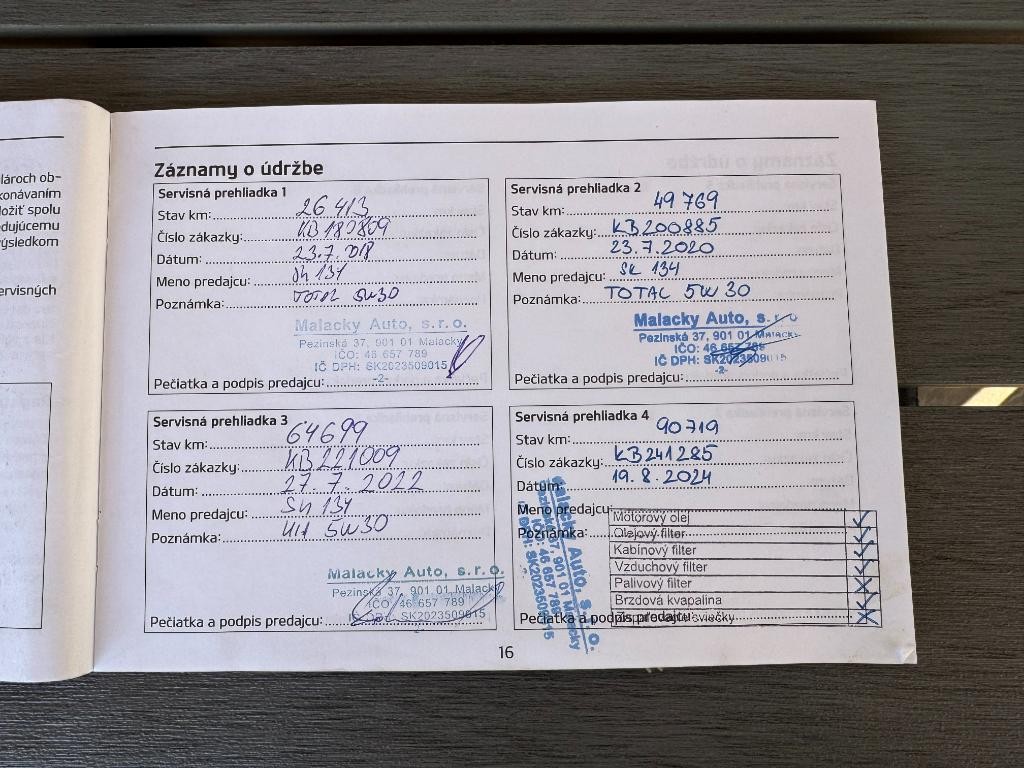 lároch ob-
konávaním
ložiť spolu
edujúcemu
výsledkom
ervisných
Záznamy o údržbe
Servisná prehliadka 1
Stav km: 26 413
Číslo zákazky: KB180809
Dátum: 23.7.018
Meno predajcu: Sh 134
Poznámka: TOTAL 5W30
Malacky Auto, s.r.o.
Pezinská 37, 901 01 Malacky
IČO: 46 657 789
IČ DPH: SK2023509015
-2-
Pečiatka a podpis predajcu:
Servisná prehliadka 2
Stav km: 49 769
Číslo zákazky: KB200885
Dátum: 23.7.2020
Meno predajcu: SK 134
Poznámka: TOTAL 5W 30
Malacky Auto, s.r.o
Pezinská 37, 901 01 Malacky
IČO: 46 657 789
IČ DPH: SK2023509015
-2-
Pečiatka a podpis predajcu:
Servisná prehliadka 3
Stav km: 64699
Číslo zákazky: KB221009
Dátum: 27.7.2022
Meno predajcu: Sh 134
Poznámka: 5W30
Malacky Auto, s.r.o.
Pezinská 37, 901 01 Malacky
IČO 46 657 789
SK2023509015
Pečiatka a podpis predajcu:
Servisná prehliadka 4
Stav km: 90719
Číslo zákazky: KB241285
Dátum: 19.8.2024
Meno predajcu:
Poznámka:
Motorový olej
Olejový filter
Kabínový filter
Vzduchový filter
Palivový filter
Brzdová kvapalina
Zapaľovacie sviečky
Pečiatka a podpis predajcu:
Malacky Auto, s.r.o.
Pezinská 37, 901 01 Malacky
IČO: 46 657 789
IČ DPH: SK2023509015
16